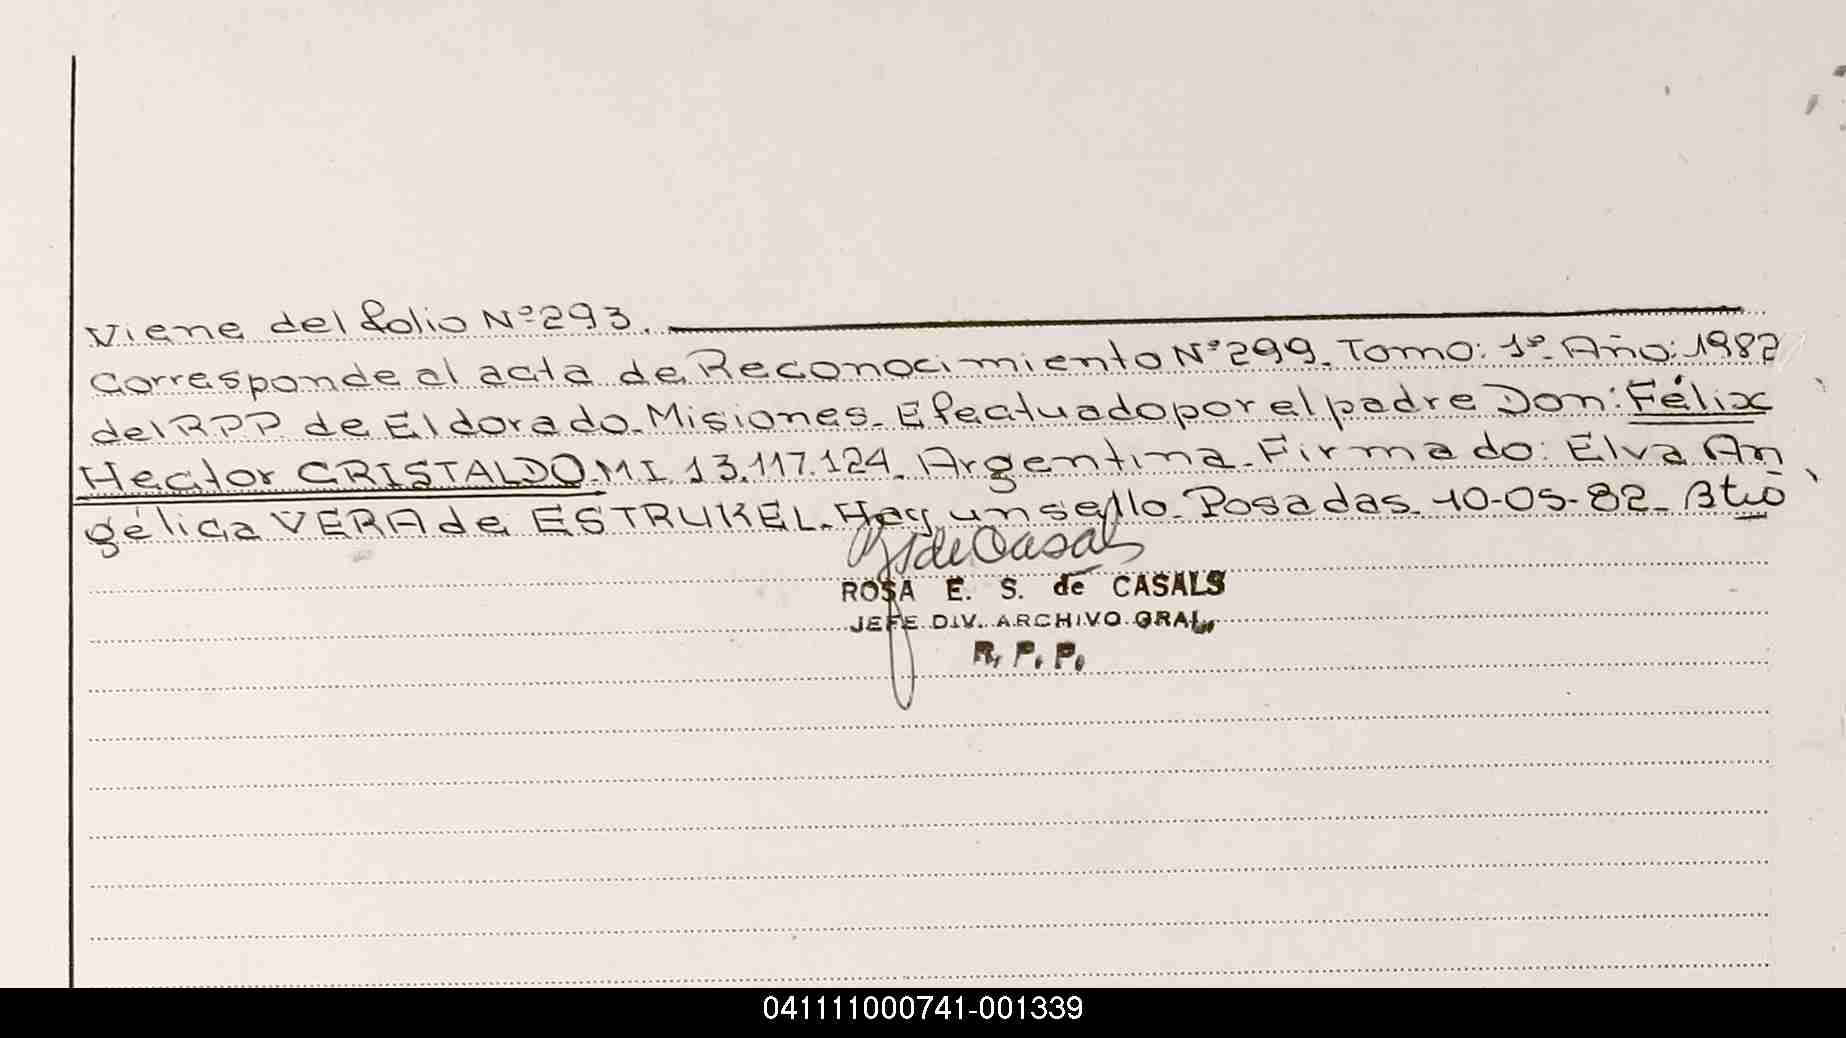 Viene del folio Nº 293.
Corresponde al acta de Reconocimiento Nº 299. Tomo: 1º. Año: 1982
del RPP de Eldorado. Misiones. Efectuado por el padre Don: Félix
Hector CRISTALDO. M I. 13.117.124. Argentina. Firmado: Elva An
gélica VERA de ESTRUKEL. Hay un sello. Posadas. 10-05-82.
ROSA E. S. de CASALS
JEFE DIV. ARCHIVO GRAL.
R. P. P.
041111000741-001339